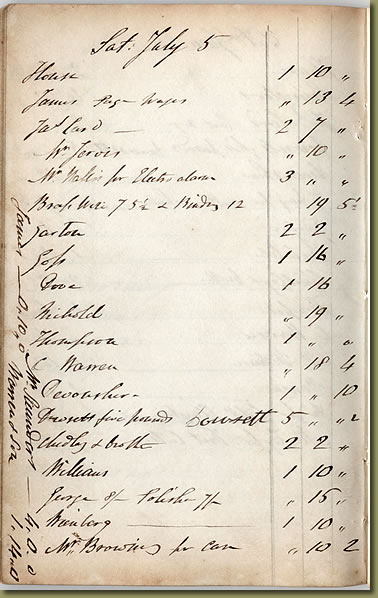 Sat: July 5
House 1 10 "
James Page Wages " 13 4
Jas Card — 2 7 "
Mr Jervis " 10 "
Mr Wallis for Electro alarm 3 " "
Brass Wire 7 5½ & Binding 12 19 5½
Garton 2 2 "
Goss 1 16 "
Dove 1 16
Nichold " 19 "
Thompson 1 " "
C Warren " 18 4
Devonshire 1 " 10
Dowsett five pounds Dowsett 5 " "2
Chudley & brother 2 2 "
Williams 1 10 "
George 8/- Polisher 7/- " 15 "
Wainberg — 1 10 "
Mr Browning for Case " 10 2
James — 0.10.0
Mr — 4.0.0
1.14.0